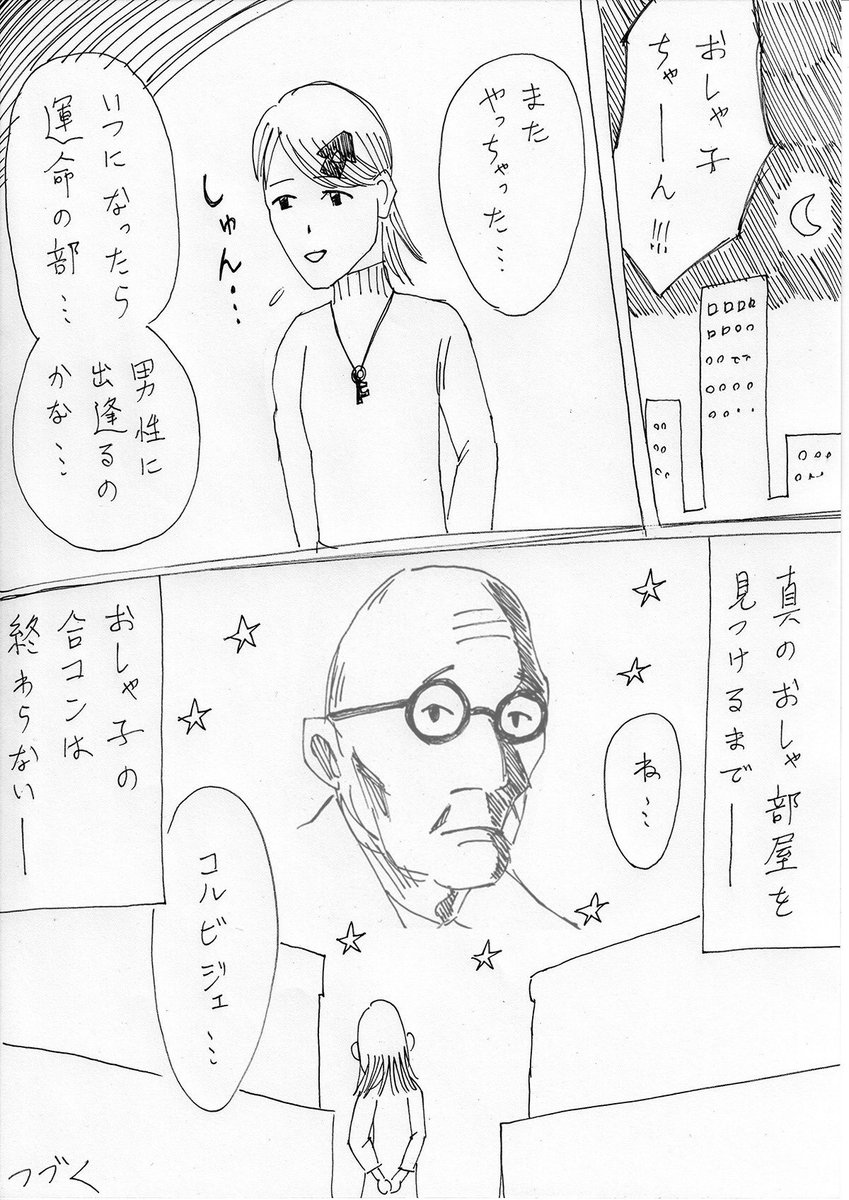 おしゃ子
ちゃーーん!!!
また
やっちゃった…
しゅん…
いつになったら
運命の部…
男性に
出逢るの
かな…
真のおしゃ部屋を
見つけるまで——
ね…
コルビジェ…
おしゃ子の
合コンは
終わらない—
つづく